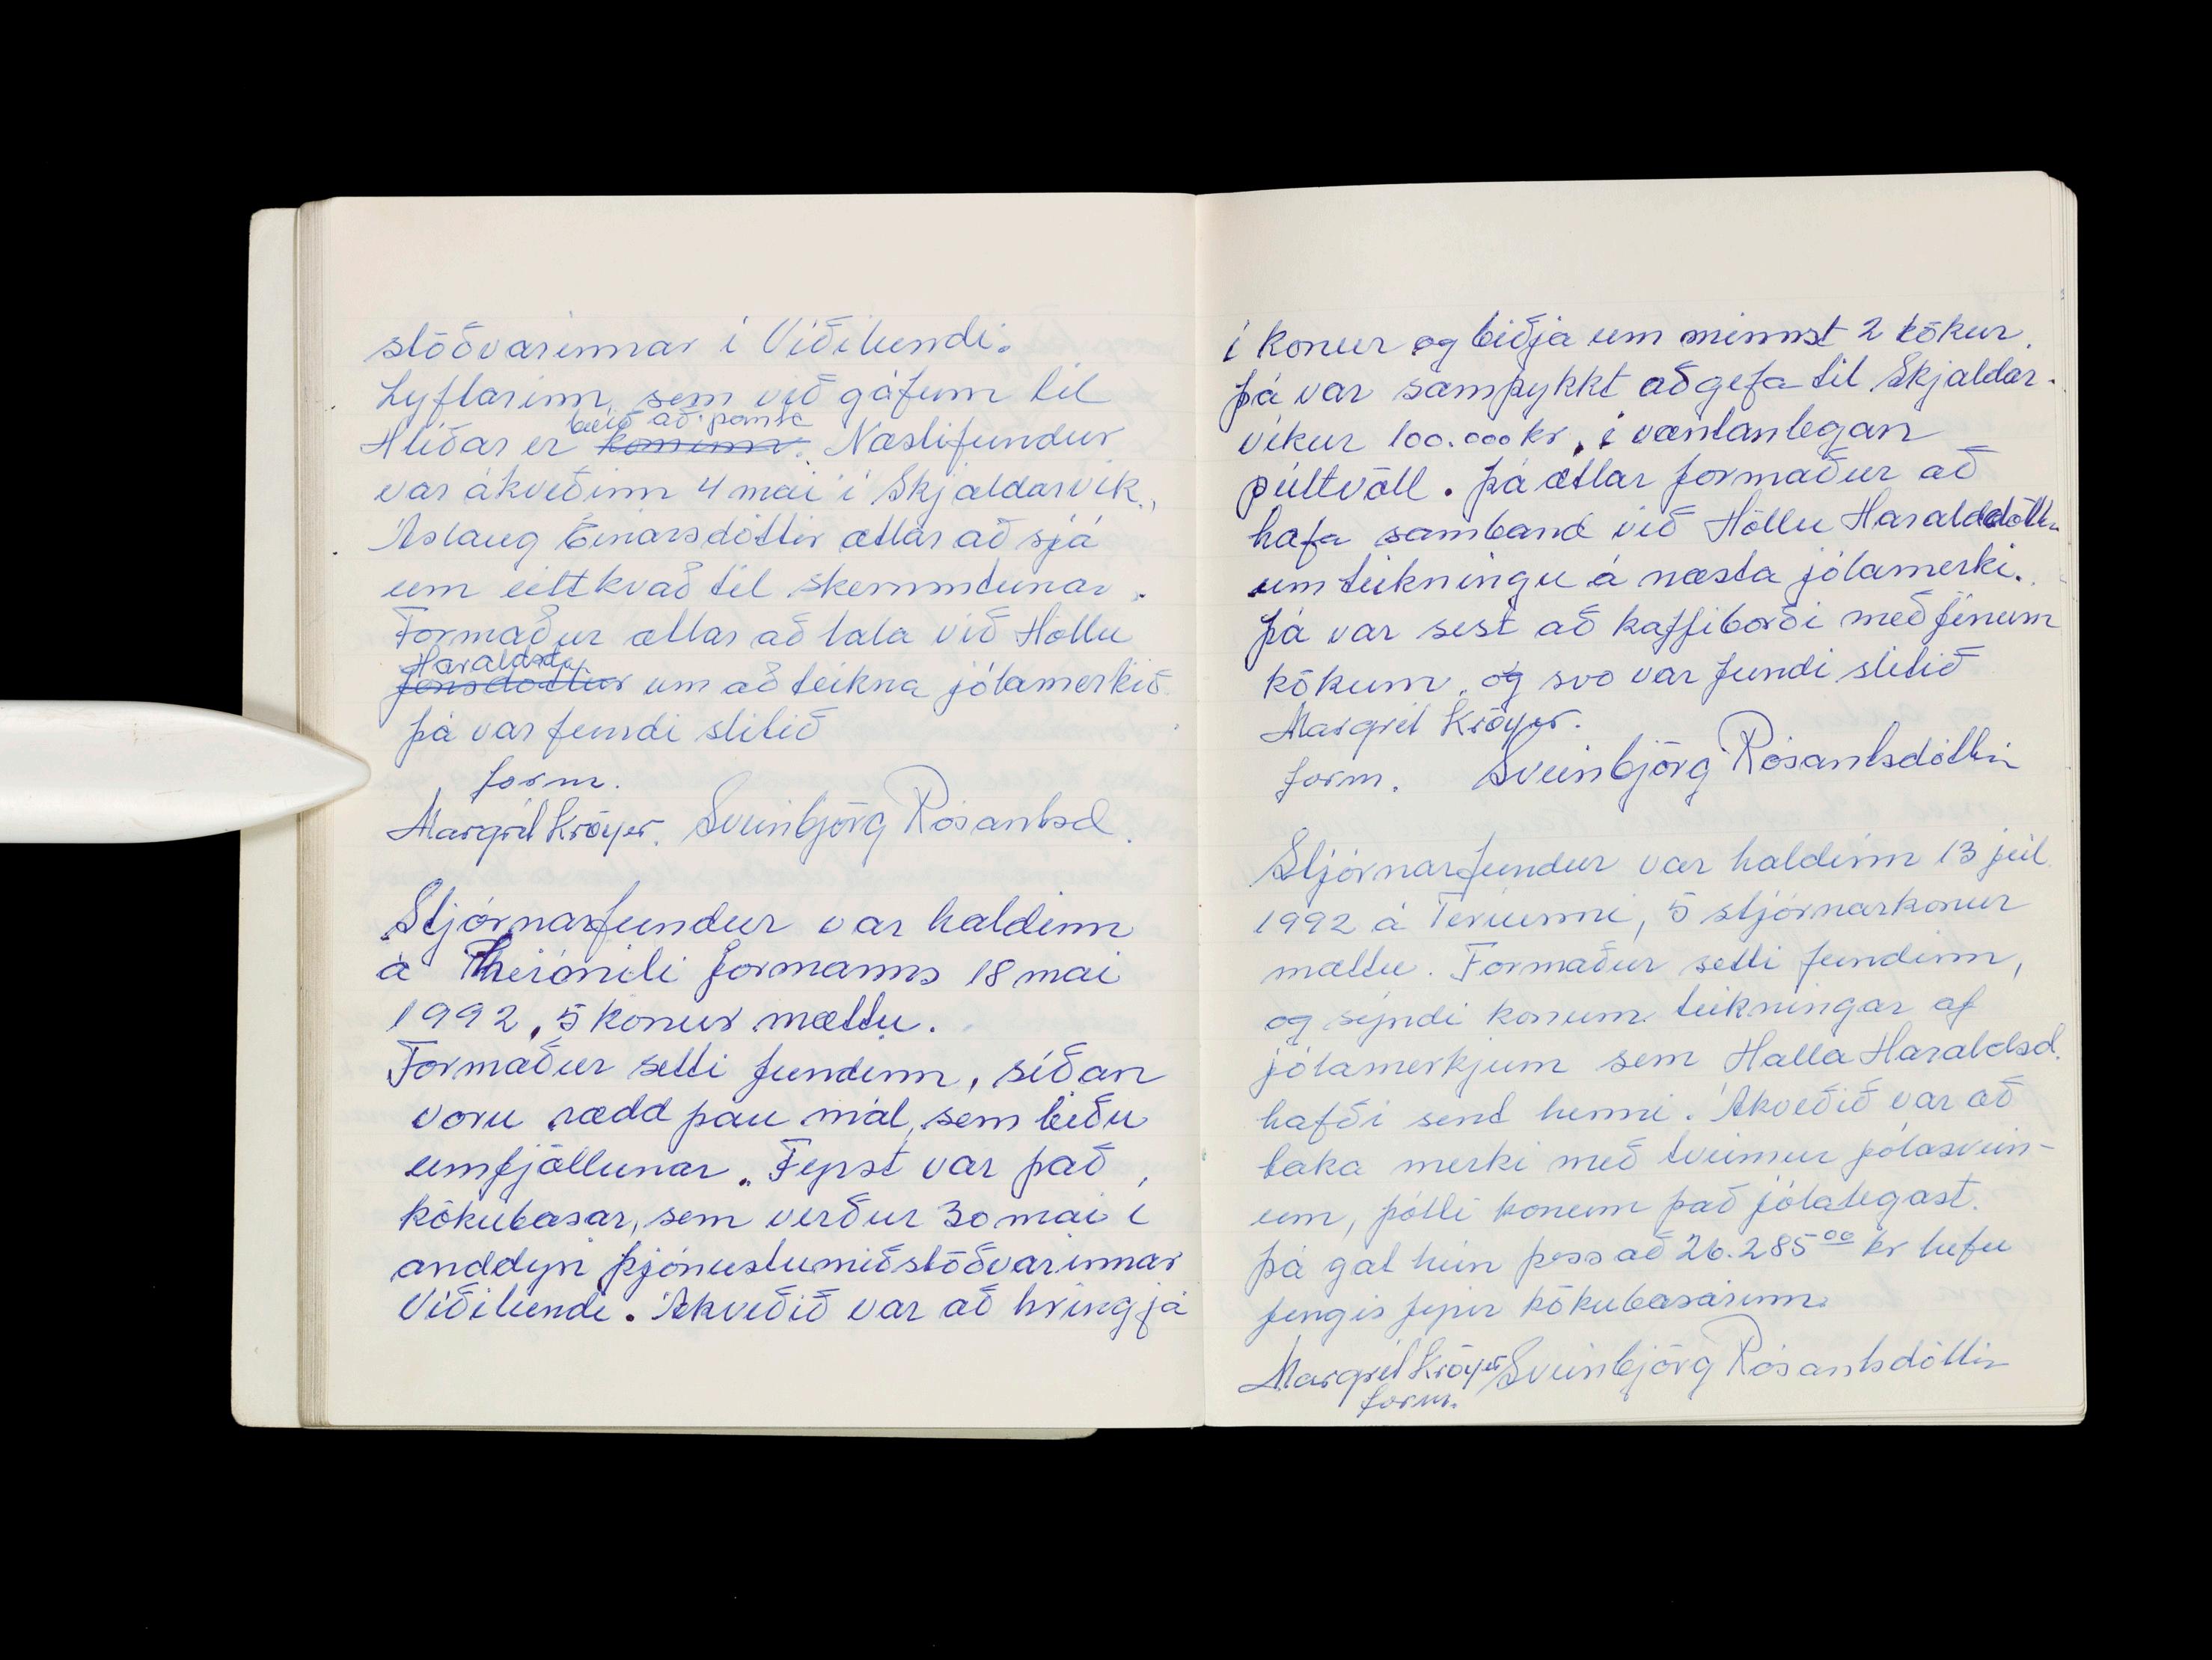 stöðvarinnar í Víðilundi.
Lyftarinn sem við gáfum til
búið að panta
Hlíðar er kominn. Næsti fundur
var ákveðinn 4 mai í Skjaldarvík.
Áslaug Einarsdóttir ætlar að sjá
um eitthvað til skemmtunar.
Formaður ætlar að tala við Höllu
Haraldsd.
Jónsdóttur um að teikna jólamerkið
þá var fundi slitið
form.
Margrét Kröyer. Sveinbjörg Rósantsd.
Stjórnarfundur var haldinn
á heimili formanns 18 mai
1992, 5 konur mættu.
Formaður setti fundinn, síðan
voru rædd þau mál, sem biðu
umfjöllunar. Fyrst var það
kökubasar, sem verður 30 mai í
anddyri þjónustumiðstöðvarinnar
Víðilundi. Ákveðið var að hringja
í konur og biðja um minnst 2 kökur.
þá var samþykkt að gefa til Skjaldar-
víkur 100.000 kr, í væntanlegan
púttvöll. þá ætlar formaður að
hafa samband við Höllu Haraldsdóttur
um teikningu á næsta jólamerki.
þá var sest að kaffiborði með fínum
kökum, og svo var fundi slitið
Margrét Kröyer.
form. Sveinbjörg Rósantsdóttir
Stjórnarfundur var haldinn 13 júl
1992 á Teriunni, 5 stjórnarkonur
mættu. Formaður setti fundinn,
og sýndi konum teikningar af
jólamerkjum sem Halla Haraldsd.
hafði send henni. Ákveðið var að
taka merki með tveimur jólasvein-
um, þótti konum það jólalegast.
þá gat hún þess að 26.285 00 kr hefu
fengis fyrir kökubasarinn.
Margrét Kröyer Sveinbjörg Rósantsdóttir
form.